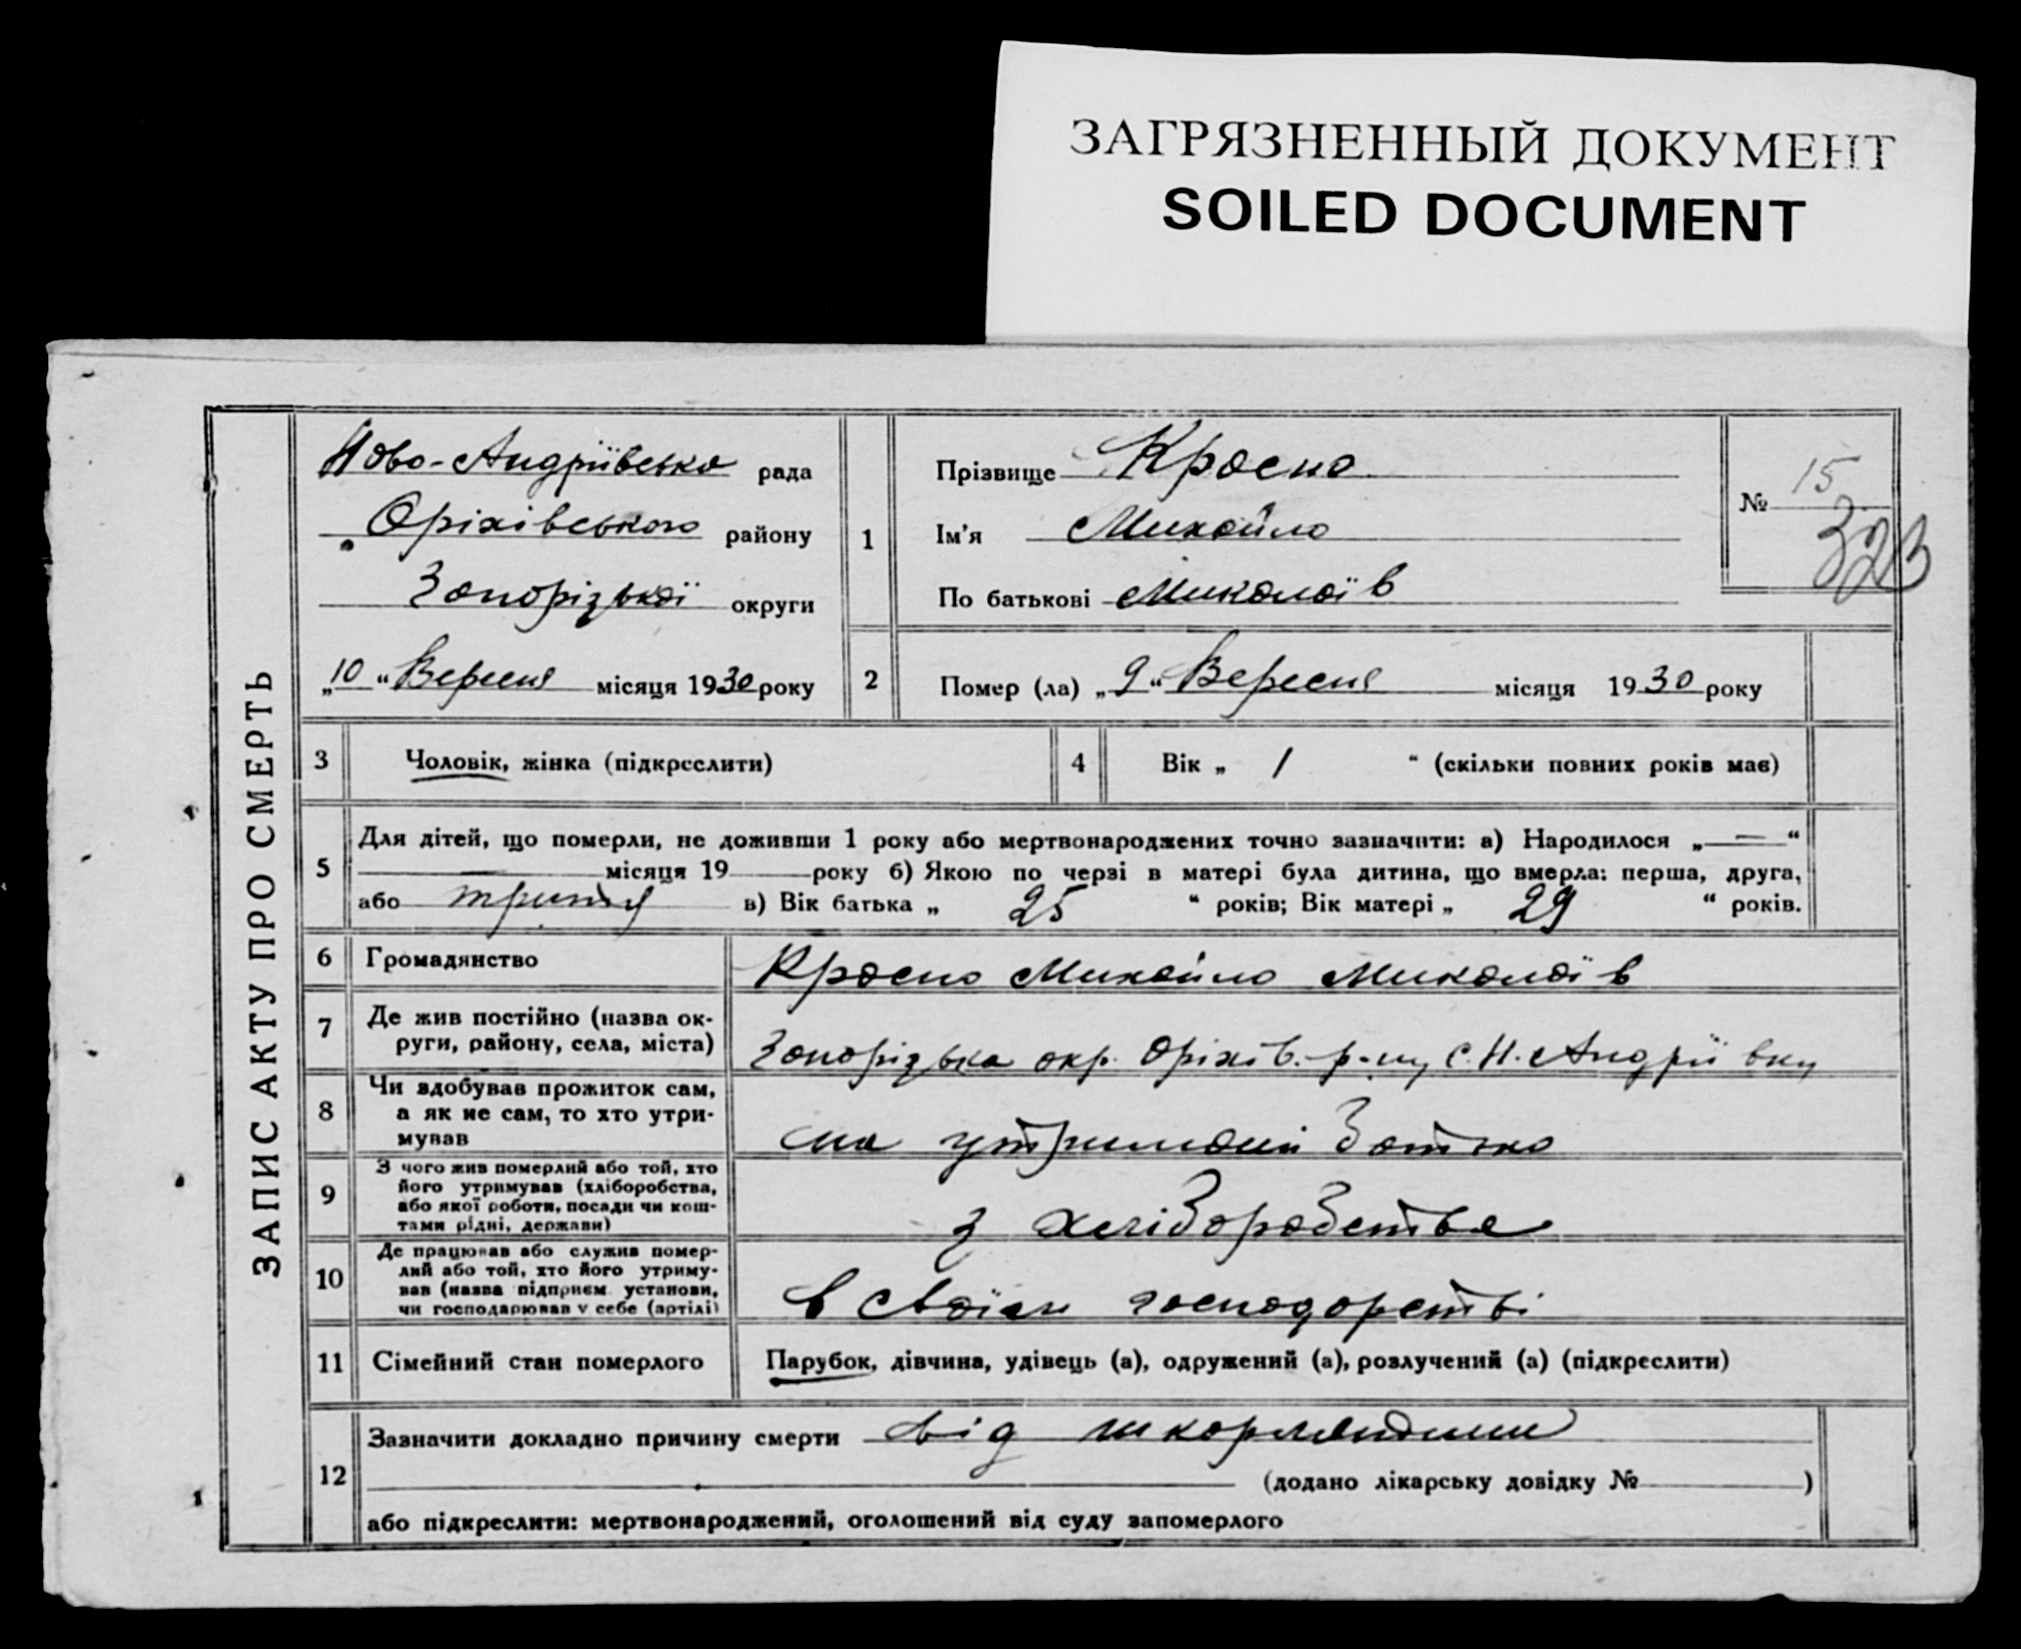 ЗАГРЯЗНЕННЫЙ ДОКУМЕНТ
SOILED DOCUMENT
ЗАПИС АКТУ ПРО СМЕРТЬ
Ново-Андріївська рада
Оріхівського району
Запорізької округи
„10“ Вересня місяця 1930 року
1
Прізвище Красно
Ім'я Михайло
По батькові Миколаїв
№ 15
323
2
Помер (ла) „9“ Вересня місяця 1930 року
3 Чоловік, жінка (підкреслити)
4 Вік „ 1 “ (скільки повних років має)
5
Для дітей, що померли, не доживши 1 року або мертвонароджених точно зазначити: а) Народилося „—“
місяця 19 року б) Якою по черзі в матері була дитина, що вмерла: перша, друга,
або третя в) Вік батька „ 25 “ років; Вік матері „ 29 “ років.
6 Громадянство Красно Михайло Миколаїв
7 Де жив постійно (назва ок-
руги, району, села, міста)
Запорізька окр. Оріхів. р-ну с. Н. Андріївку
8 Чи здобував прожиток сам,
а як не сам, то хто утри-
мував
на утриманні батька
9 З чого жив померлий або той, хто
його утримував (хліборобства,
або якої роботи, посади чи кош-
тами рідні, держави)
з хліборобства
10 Де працював або служив помер-
лий або той, хто його утриму-
вав (назва підприєм. установи,
чи господарював у себе (артілі)
в своїм господарстві
11 Сімейний стан померлого Парубок, дівчина, удівець (а), одружений (а), розлучений (а) (підкреслити)
12 Зазначити докладно причину смерти від шкорлатини
(додано лікарську довідку № )
або підкреслити: мертвонароджений, оголошений від суду запомерлого